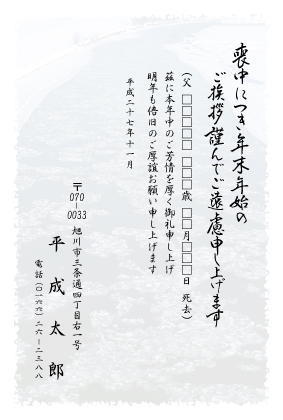 喪中につき年末年始の
ご挨拶謹んでご遠慮申し上げます
（父 □□□□ □□□歳 □□月□□日 死去）
茲に本年中のご芳情を厚く御礼申し上げ
明年も倍旧のご厚誼お願い申し上げます
平成二十七年十一月
〒
070
-
0033
旭川市三条通四丁目右一号
平成太郎
電話（〇一六六）二六－二三八八